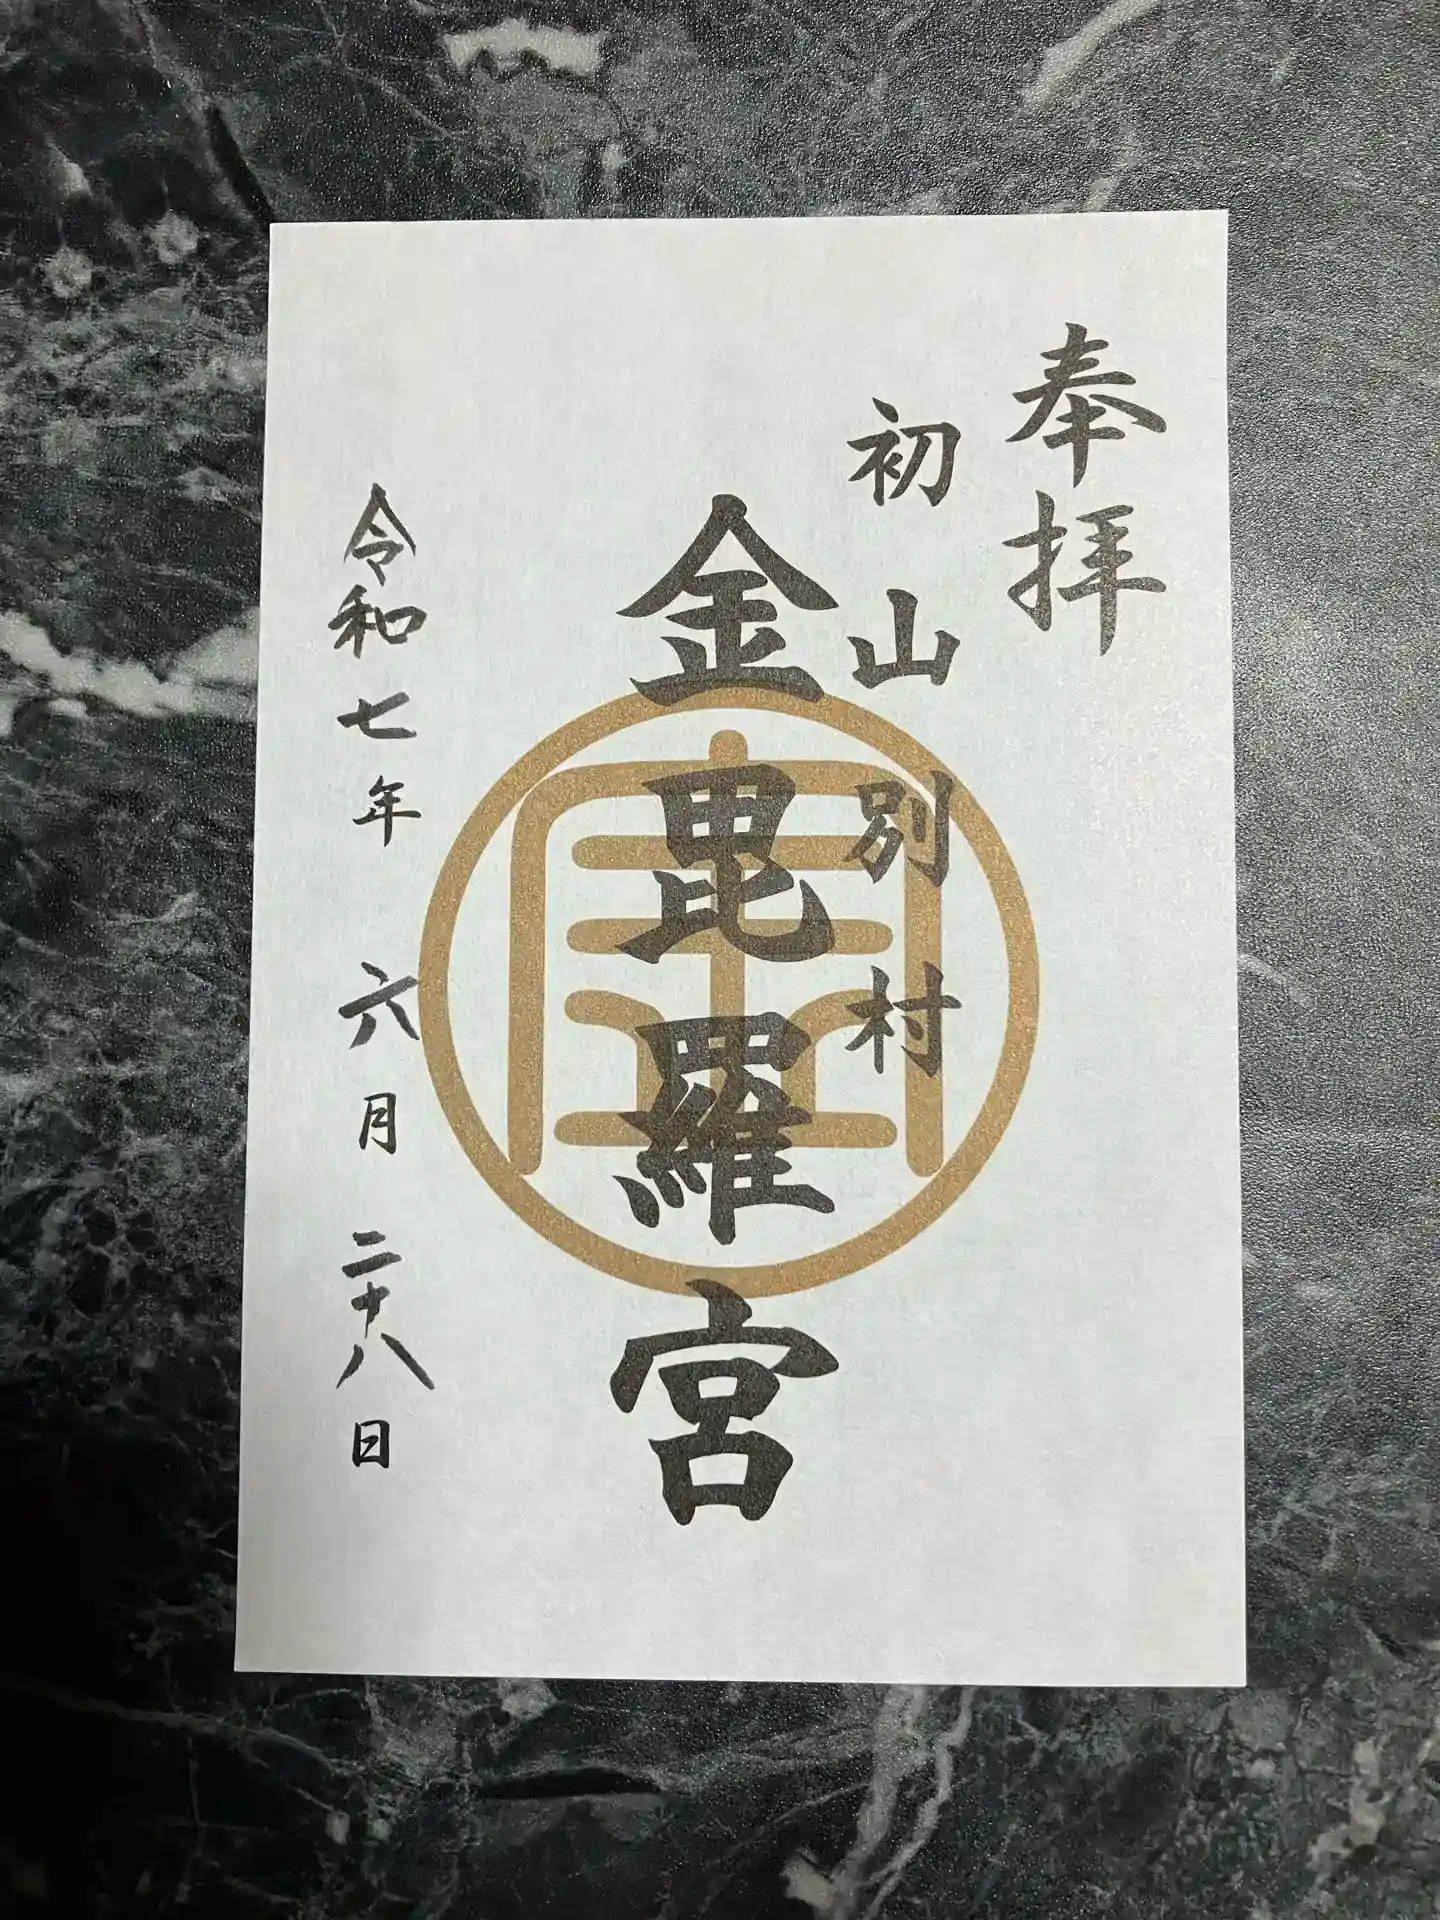 奉拝
初山別村
金毘羅宮
令和七年六月二十八日